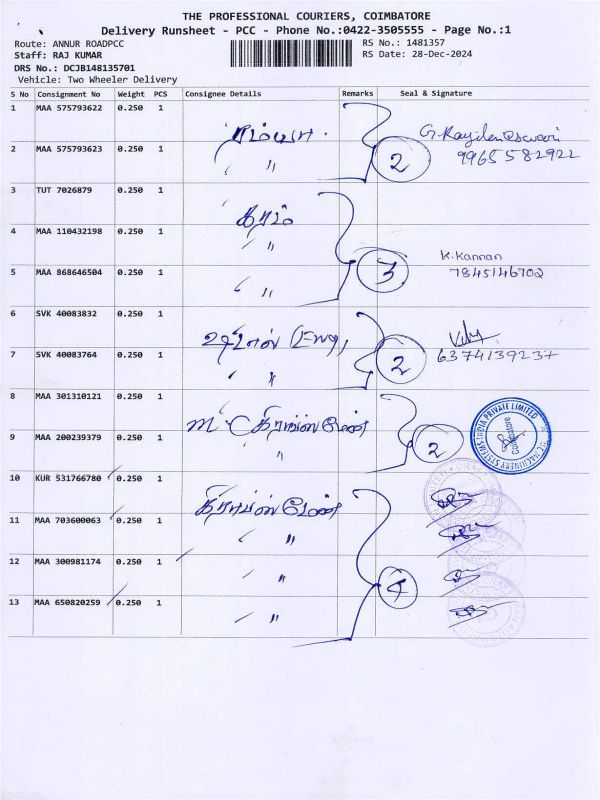 THE PROFESSIONAL COURIERS, COIMBATORE
Delivery Runsheet - PCC - Phone No.:0422-3505555 - Page No.:1
Route: ANNUR ROADPCC
RS No.: 1481357
Staff: RAJ KUMAR
RS Date: 28-Dec-2024
DRS No.: DCJB148135701
Vehicle: Two Wheeler Delivery
S No Consignment No Weight PCS Consignee Details Remarks Seal & Signature
1 MAA 575793622 0.250 1
2 MAA 575793623 0.250 1 " 2 9965582922
3 TUT 7026879 0.250 1
4 MAA 110432198 0.250 1 "
K.Kannan
5 MAA 868646504 0.250 1 " 3 7845146702
6 SVK 40083832 0.250 1
7 SVK 40083764 0.250 1 " 2 6374139237
8 MAA 301310121 0.250 1
9 MAA 200239379 0.250 1 " 2
10 KUR 531766780 0.250 1
11 MAA 703600063 0.250 1 "
12 MAA 300981174 0.250 1 "
13 MAA 650820259 0.250 1 " 4